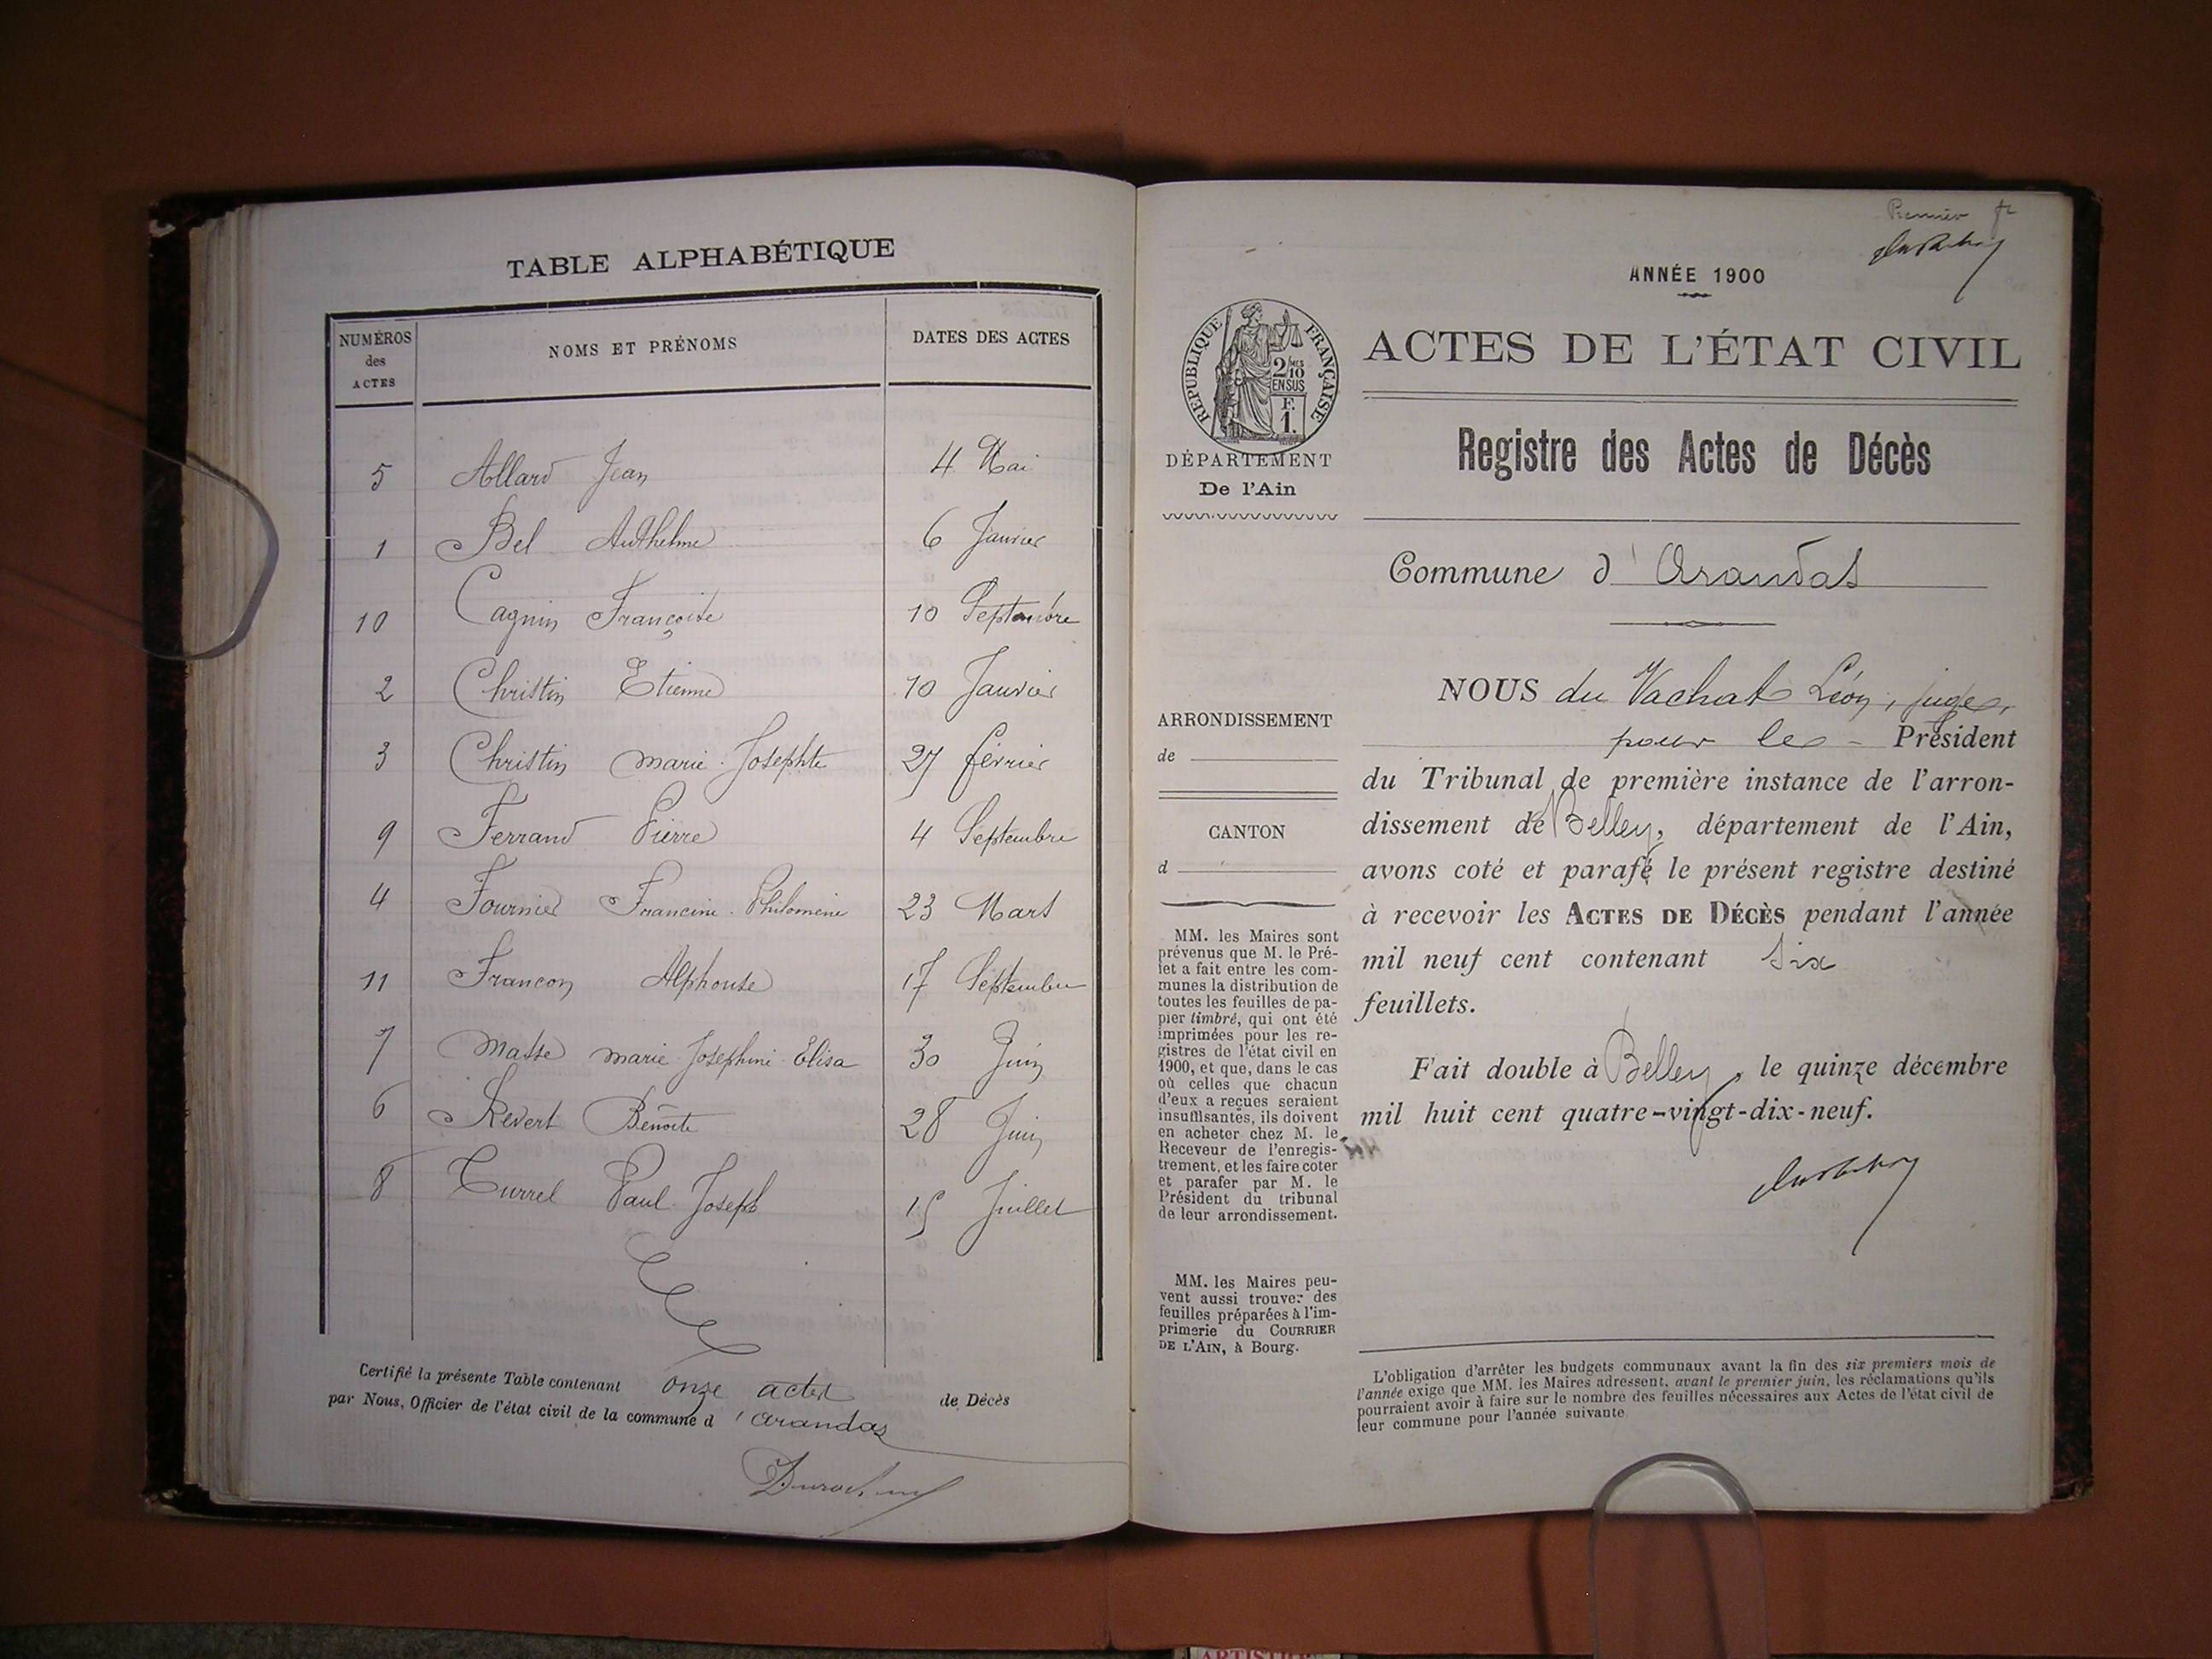 TABLE ALPHABÉTIQUE
NUMÉROS des ACTES
NOMS ET PRÉNOMS
DATES DES ACTES
5 Allard Jean 4 Mai
1 Bel Anthelme 6 Janvier
10 Cagnin Françoise 10 Septembre
2 Christin Etienne 10 Janvier
3 Christin Marie-Josephte 27 février
9 Ferrand Pierre 4 Septembre
4 Fournier Francine-Philomène 23 Mars
11 Francon Alphonse 17 Septembre
7 Masse Marie-Joséphine-Elisa 30 Juin
6 Revert Benoite 28 Juin
8 Turrel Paul-Joseph 15 Juillet
Certifié la présente Table contenant onze actes de Décès
par Nous, Officier de l'état civil de la commune d'Arandas
Premier
ANNÉE 1900
RÉPUBLIQUE FRANÇAISE
2/10 MES
EN SUS
F.
1.
DÉPARTEMENT
De l'Ain
ACTES DE L'ÉTAT CIVIL
Registre des Actes de Décès
Commune d'Arandas
ARRONDISSEMENT
de
CANTON
d
MM. les Maires sont
prévenus que M. le Pré-
fet a fait entre les com-
munes la distribution de
toutes les feuilles de pa-
pier timbré, qui ont été
imprimées pour les re-
gistres de l'état civil en
1900, et que, dans le cas
où celles que chacun
d'eux a reçues seraient
insuffisantes, ils doivent
en acheter chez M. le
Receveur de l'enregis-
trement, et les faire coter
et parafer par M. le
Président du tribunal
de leur arrondissement.
MM. les Maires peu-
vent aussi trouver des
feuilles préparées à l'im-
primerie du COURRIER
DE L'AIN, à Bourg.
NOUS du Vachat Léon, juge,
pour le - Président
du Tribunal de première instance de l'arron-
dissement de Belley, département de l'Ain,
avons coté et parafé le présent registre destiné
à recevoir les ACTES DE DÉCÈS pendant l'année
mil neuf cent contenant six
feuillets.
Fait double à Belley, le quinze décembre
mil huit cent quatre-vingt-dix-neuf.
L'obligation d'arrêter les budgets communaux avant la fin des six premiers mois de
l'année exige que MM. les Maires adressent, avant le premier juin, les réclamations qu'ils
pourraient avoir à faire sur le nombre des feuilles nécessaires aux Actes de l'état civil de
leur commune pour l'année suivante